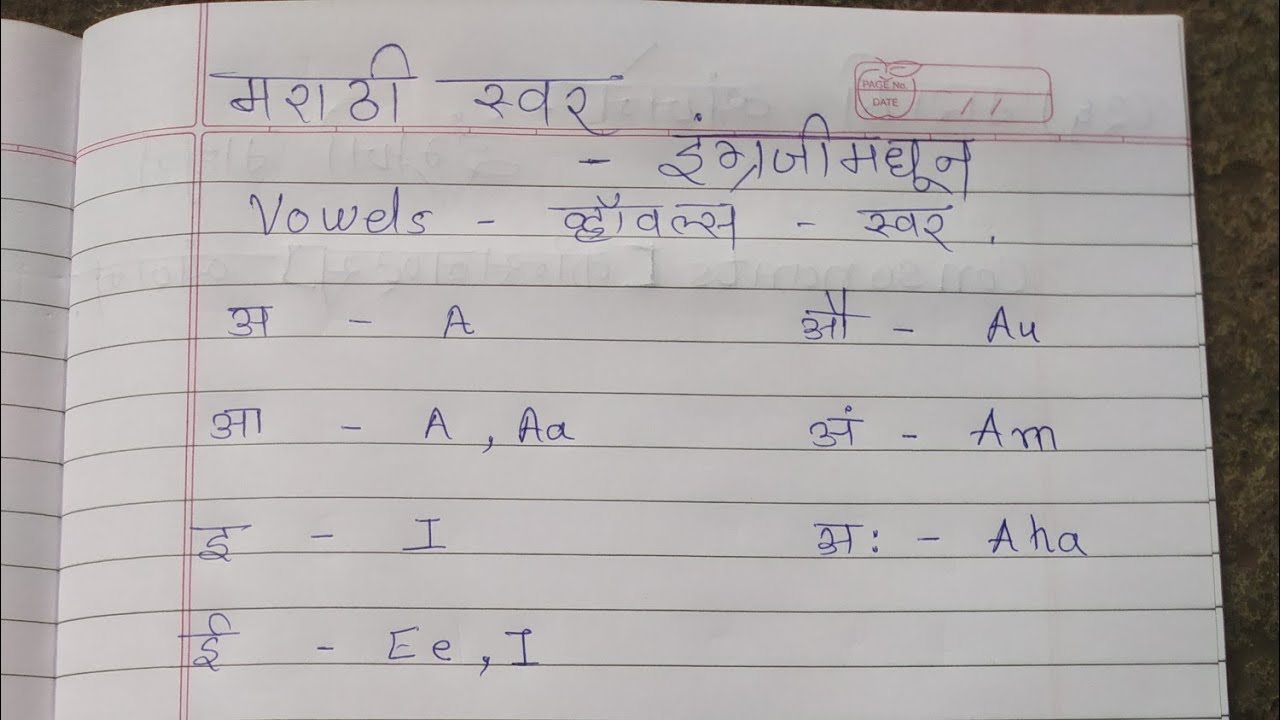 मराठी स्वर
PAGE No.
DATE / /
- इंग्रजीमधून
Vowels - व्हॉवेल्स - स्वर .
अ - A
औ - Au
आ - A , Aa
अं - Am
इ - I
अः - Aha
ई - Ee , I